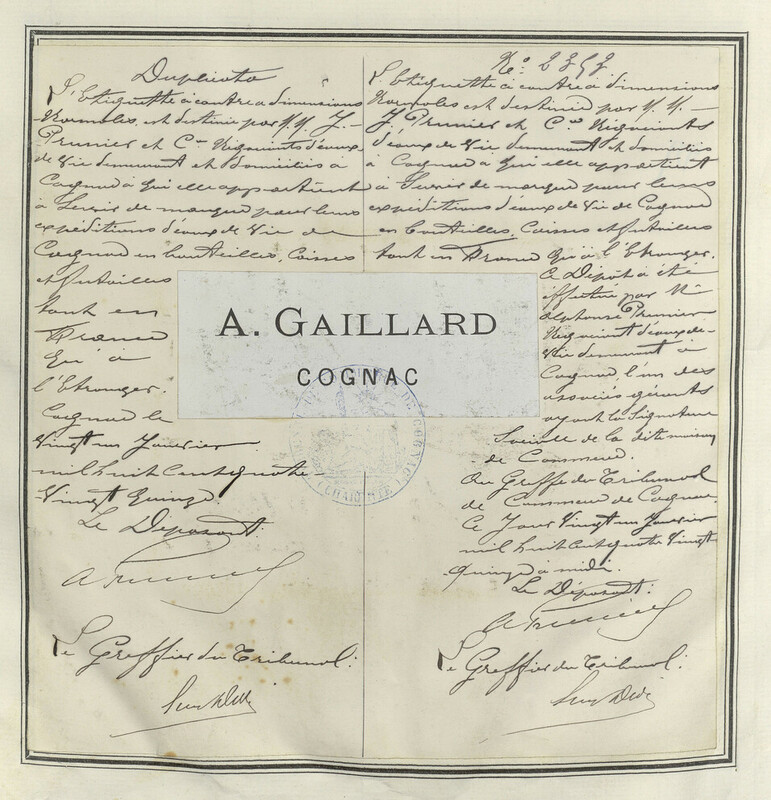 Duplicata
L'Etiquette ci contre a dimensions
Normales, est destinée par M.M. J.
Prunier et Cie Négociants d'eaux
de Vie demeurant et domiciliés à
Cognac à qui elle appartient
à Servir de marque pour leurs
expéditions d'eaux de Vie de
Cognac en bouteilles, Caisses
et futailles
tant en
France
qu'à
l'Etranger.
Cognac le
Vingt un Janvier
mil huit cent quatre
Vingt Quinze.
Le Déposant:
Le Greffier du Tribunal:
A. GAILLARD
COGNAC
No
L'Etiquette ci contre a dimensions
Normales est destinée par M.M.
J. Prunier et Cie Négociants
d'eaux de Vie demeurant et domiciliés
à Cognac à qui elle appartient
à Servir de marque pour leurs
expéditions d'eaux de Vie de Cognac
en bouteilles, Caisses et futailles
tant en France qu'à l'Etranger.
Ce Dépôt à été
effectué par Mr
Alphonse Prunier
Négociant d'eaux de
Vie demeurant à
Cognac, l'un des
associés gérants
ayant la Signature
Sociale de la dite maison
de Commerce.
Au Greffe du Tribunal
de Commerce de Cognac
Ce Jour Vingt un Janvier
mil huit cent quatre Vingt
quinze à midi.
Le Déposant:
A Prunier
Le Greffier du Tribunal:
DE COGNAC
(CHARENTE)